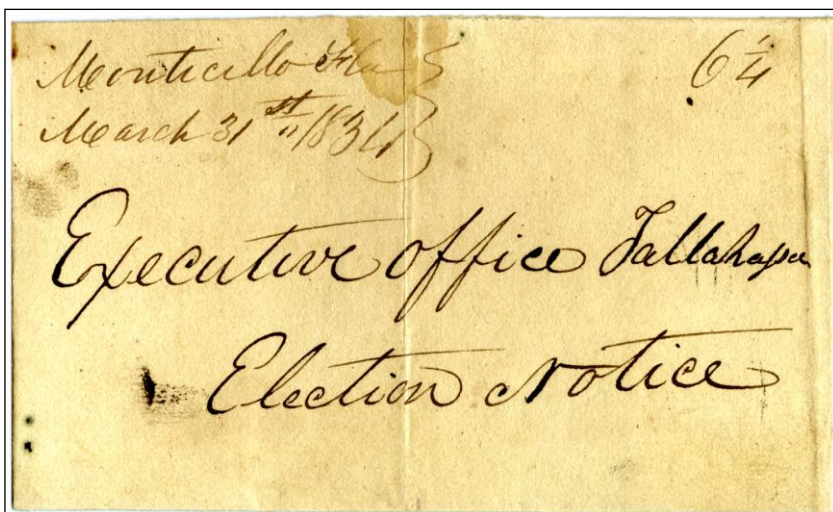 Monticello Fla
6 1/4
March 31st 1834
Executive office Tallahassee
Election Notice